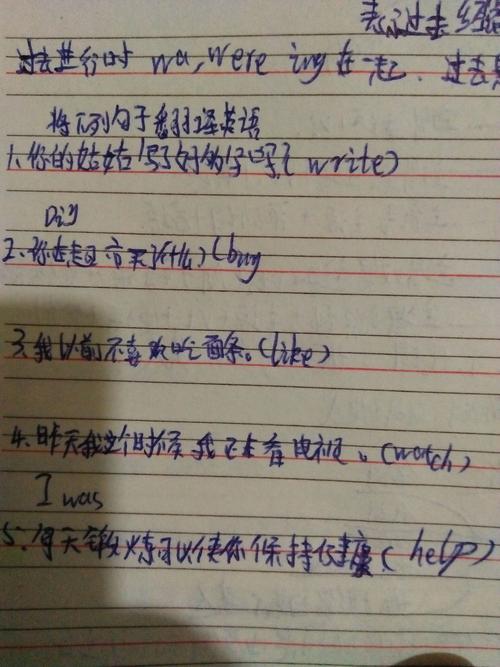 表示过去经
过去进行时 wa, were ing 在一起. 过去
将下列句子翻译英语
1. 你的姑姑写好的字吗( write)
Did
2. 你在超市买了什么)(buy
3. 我以前不喜欢吃面条。(like)
4. 昨天我这个时候我正在看电视。(watch)
I was
5. 每天锻炼可以使你保持健康( help)